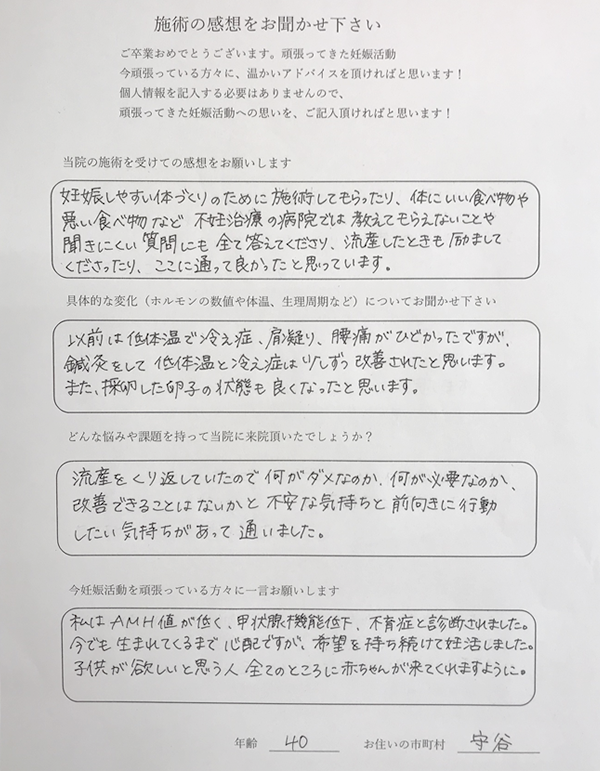 施術の感想をお聞かせ下さい
ご卒業おめでとうございます。頑張ってきた妊娠活動
今頑張っている方々に、温かいアドバイスを頂ければと思います！
個人情報を記入する必要はありませんので、
頑張ってきた妊娠活動への思いを、ご記入頂ければと思います！
当院の施術を受けての感想をお願いします
妊娠しやすい体づくりのために施術してもらったり、体にいい食べ物や
悪い食べ物など 不妊治療の病院では教えてもらえないことや
聞きにくい質問にも全て答えてくださり、流産したときも励まして
くださったり、ここに通って良かったと思っています。
具体的な変化（ホルモンの数値や体温、生理周期など）についてお聞かせ下さい
以前は低体温で冷え症、肩凝り、腰痛がひどかったですが、
鍼灸をして低体温と冷え症は少しずつ改善されたと思います。
また、採卵した卵子の状態も良くなったと思います。
どんな悩みや課題を持って当院に来院頂いたでしょうか？
流産をくり返していたので何がダメなのか、何が必要なのか、
改善できることはないかと不安な気持ちと前向きに行動
したい気持ちがあって通いました。
今妊娠活動を頑張っている方々に一言お願いします
私はAMH値が低く、甲状腺機能低下、不育症と診断されました。
今でも生まれてくるまで心配ですが、希望を持ち続けて妊活しました。
子供が欲しいと思う人全てのところに赤ちゃんが来てくれますように。
年齢 40 お住いの市町村 守谷